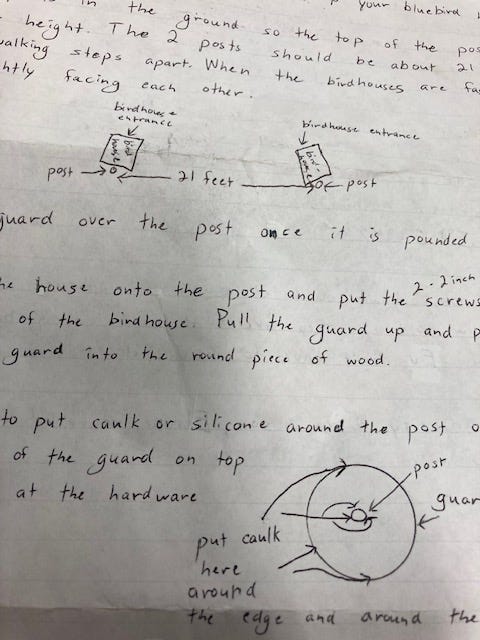 in the ground so the top of the pos
your bluebird
height. The 2 posts should be about 21
walking steps apart. When the birdhouses are fa
htly facing each other.
birdhouse
entrance
birdhouse entrance
bird
house
bird-
house
post
21 feet
post
guard over the post once it is pounded
he house onto the post and put the 2-2inch screws
of the birdhouse. Pull the guard up and p
guard into the round piece of wood.
to put caulk or silicone around the post o
of the guard on top
at the hardware
post
guar
put caulk
here
around
the edge and around the